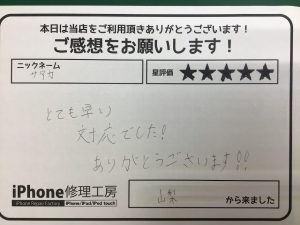 本日は当店をご利用頂きありがとうございます！
ご感想をお願いします！
ニックネーム
サヤカ
星評価 ★★★★★
とても早い
対応でした！
ありがとうございます!!
iPhone修理工房
iPhone Repair Factory iPhone/iPad/iPod touch
山梨 から来ました